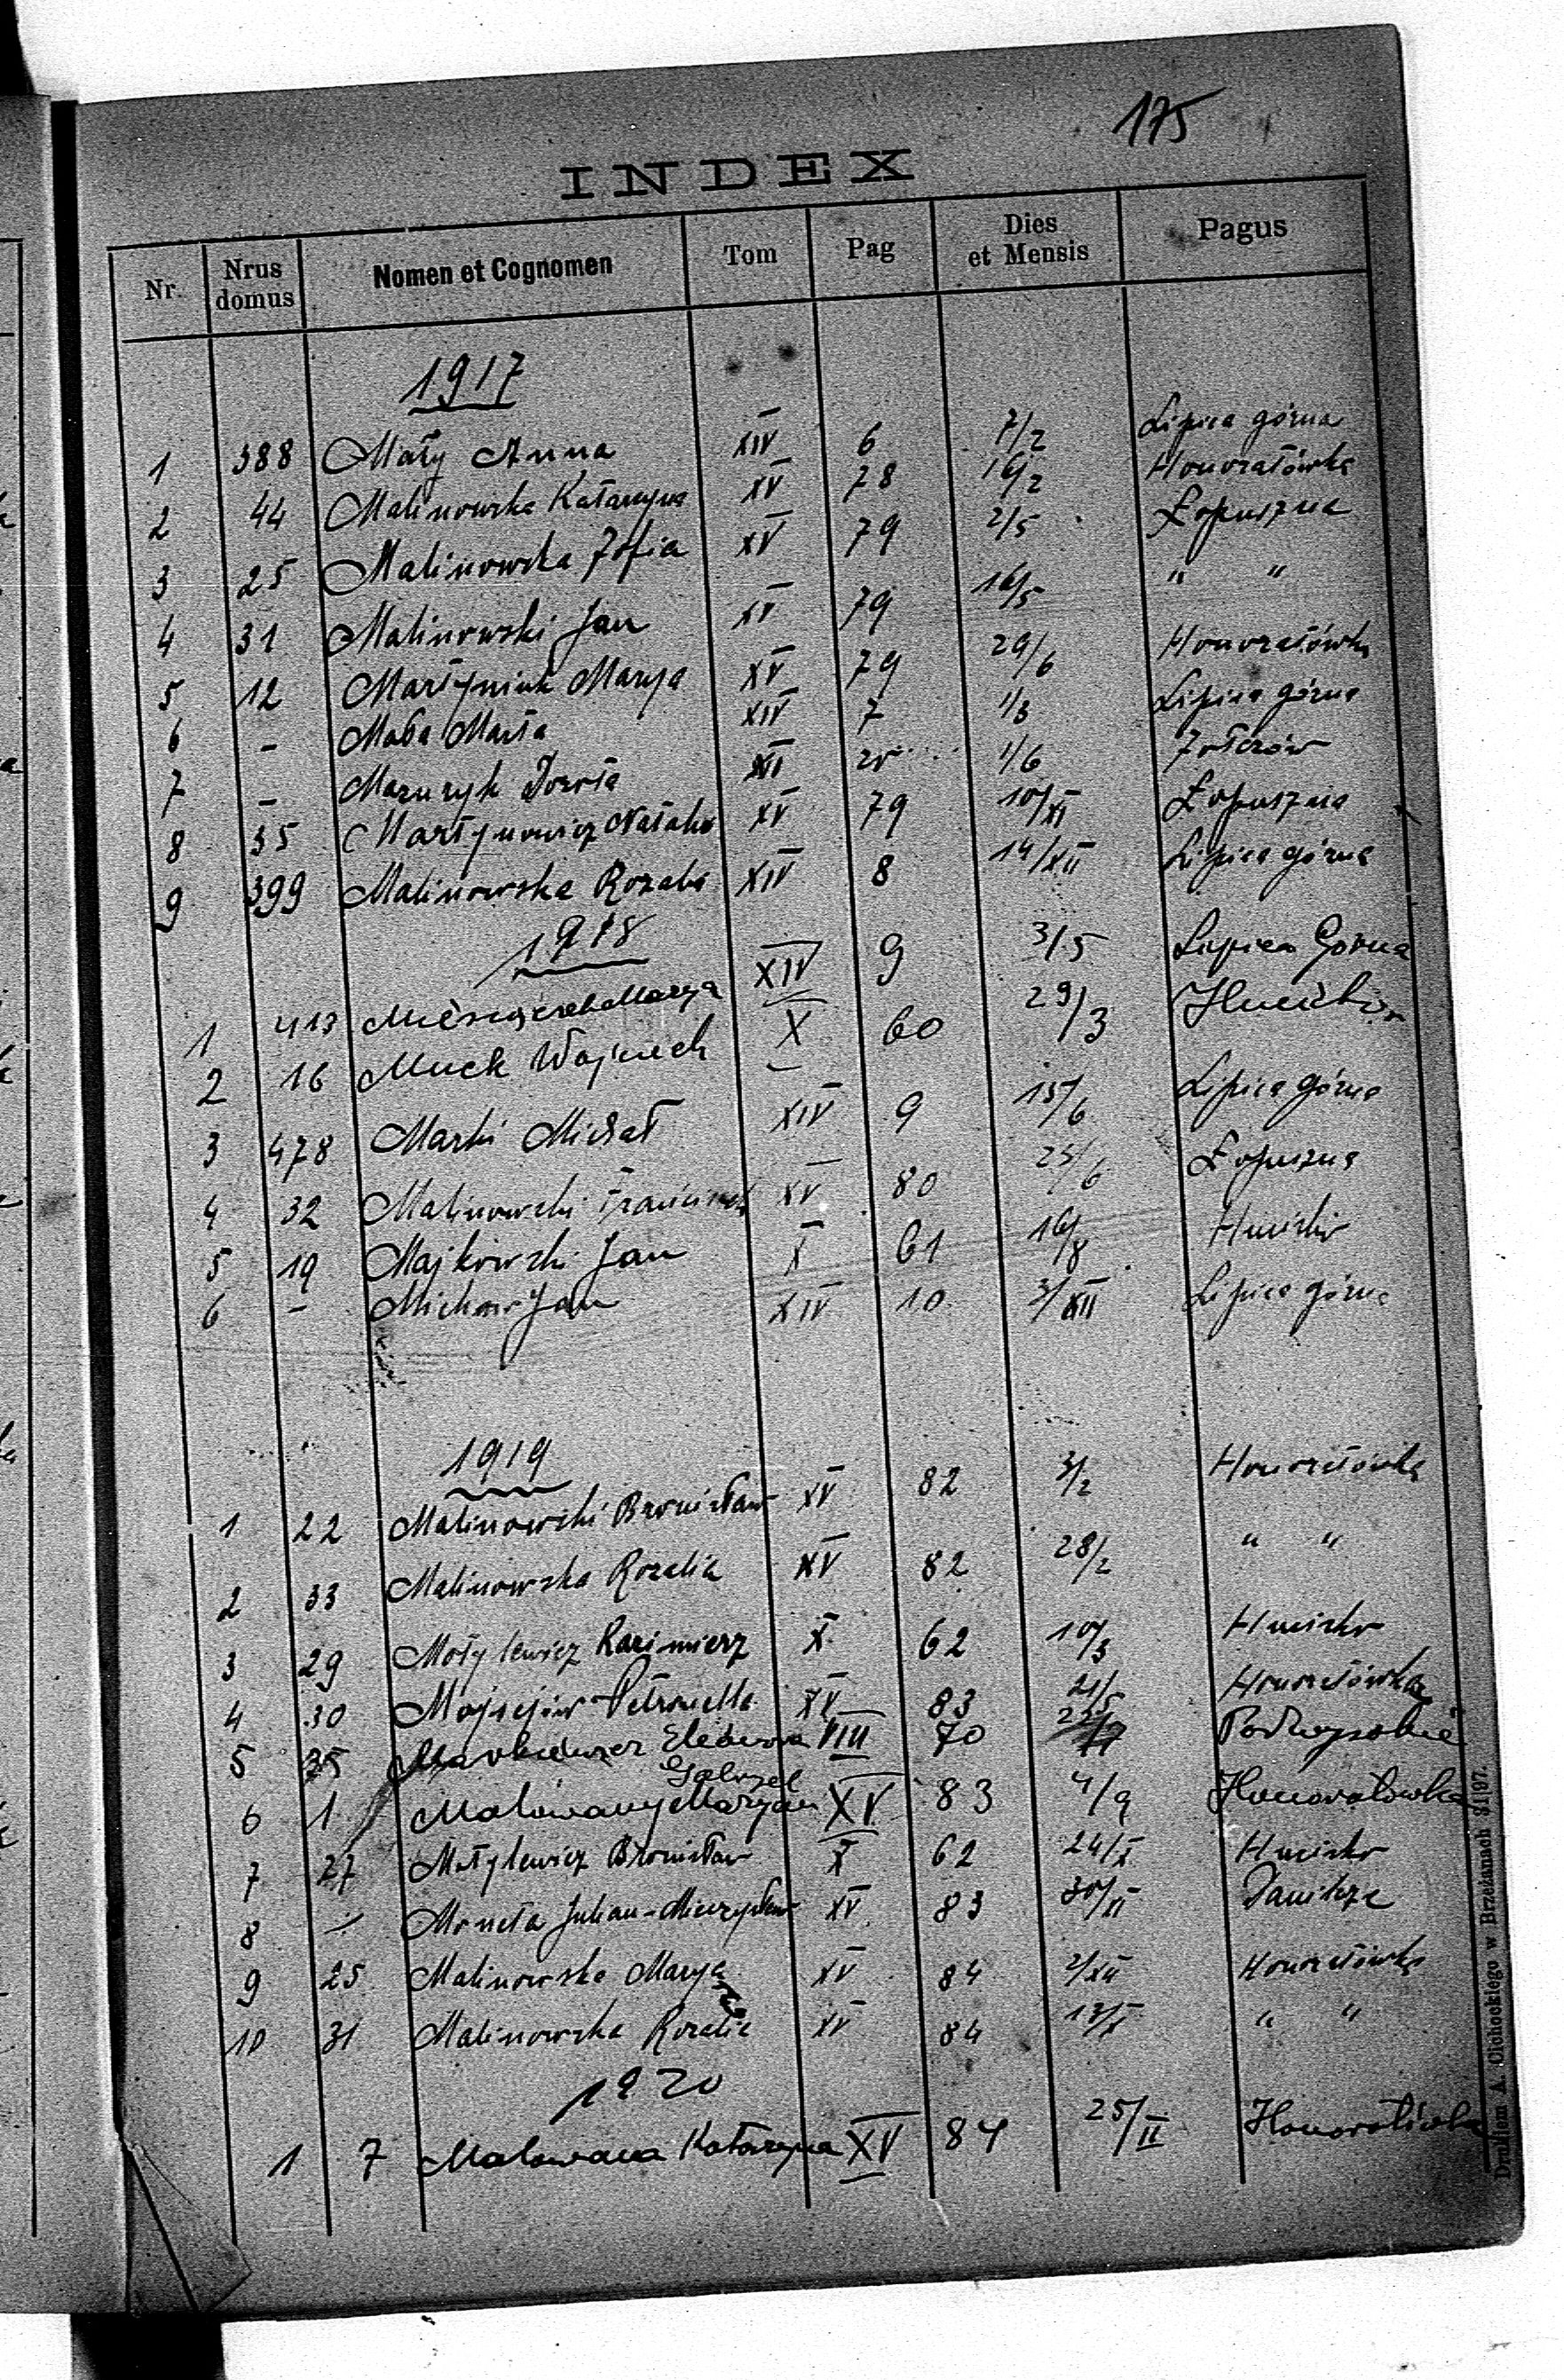 175
INDEX
Nr. Nrus domus Nomen et Cognomen Tom Pag Dies et Mensis Pagus
1917
1 388 Mały Anna XIV 6 7/2 Lipica górna
2 44 Malinowska Katarzyna XV 78 16/2 Honoratówka
3 25 Malinowska Zofia XV 79 2/5 Łopuszna
4 31 Malinowski Jan XV 79 16/5 " "
5 12 Martyniuk Marya XV 79 29/6 Honoratówka
6 - Marta XIV 7 1/3 Lipica górna
7 - Mazuryk XII 1/6 Żołczów
8 35 Martynowicz XV 79 10/XI Łopuszna
9 399 Malinowska Rozalia XIV 8 14/XII Lipica górna
1918
1 413 Marya XIV 9 3/5 Lipica Górna
2 16 Muck Wojciech X 60 29/3 Hucisko
3 478 Marki Michał XIV 9 15/6 Lipica górna
4 32 Malinowski Franciszek XV 80 25/6 Łopuszna
5 19 Majkowski Jan X 61 16/8 Hucisko
6 - Michow Jan XIV 10 3/XII Lipica górna
1919
1 22 Malinowski Bronisław XV 82 3/2 Honoratówka
2 33 Malinowska Rozalia XV 82 28/2 " "
3 29 Motylewicz Kazimierz X 62 10/3 Hucisko
4 30 Mojsejów Petronella XV 83 21/5 Honoratówka
5 35 VIII 70
6 1 Malowany Maryan XV 83 4/9 Honoratówka
7 27 Motylewicz Bronisław X 62 24/X Hucisko
8 - Moneta Julian-Mieczysław XV 83 30/XI Danilcze
9 25 Malinowska Marya XV 84 2/XII Honoratówka
10 31 Malinowska Rozalia XV 84 " "
1920
1 7 Malowana Katarzyna XV 84 25/II Honoratówka
Drukiem A. Cichockiego w Brzeżanach 31|97.